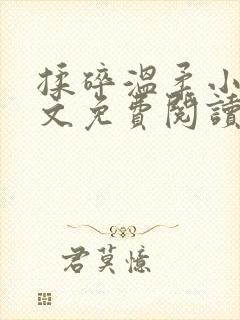 揉碎溫柔小
文免費閱讀
君莫憶